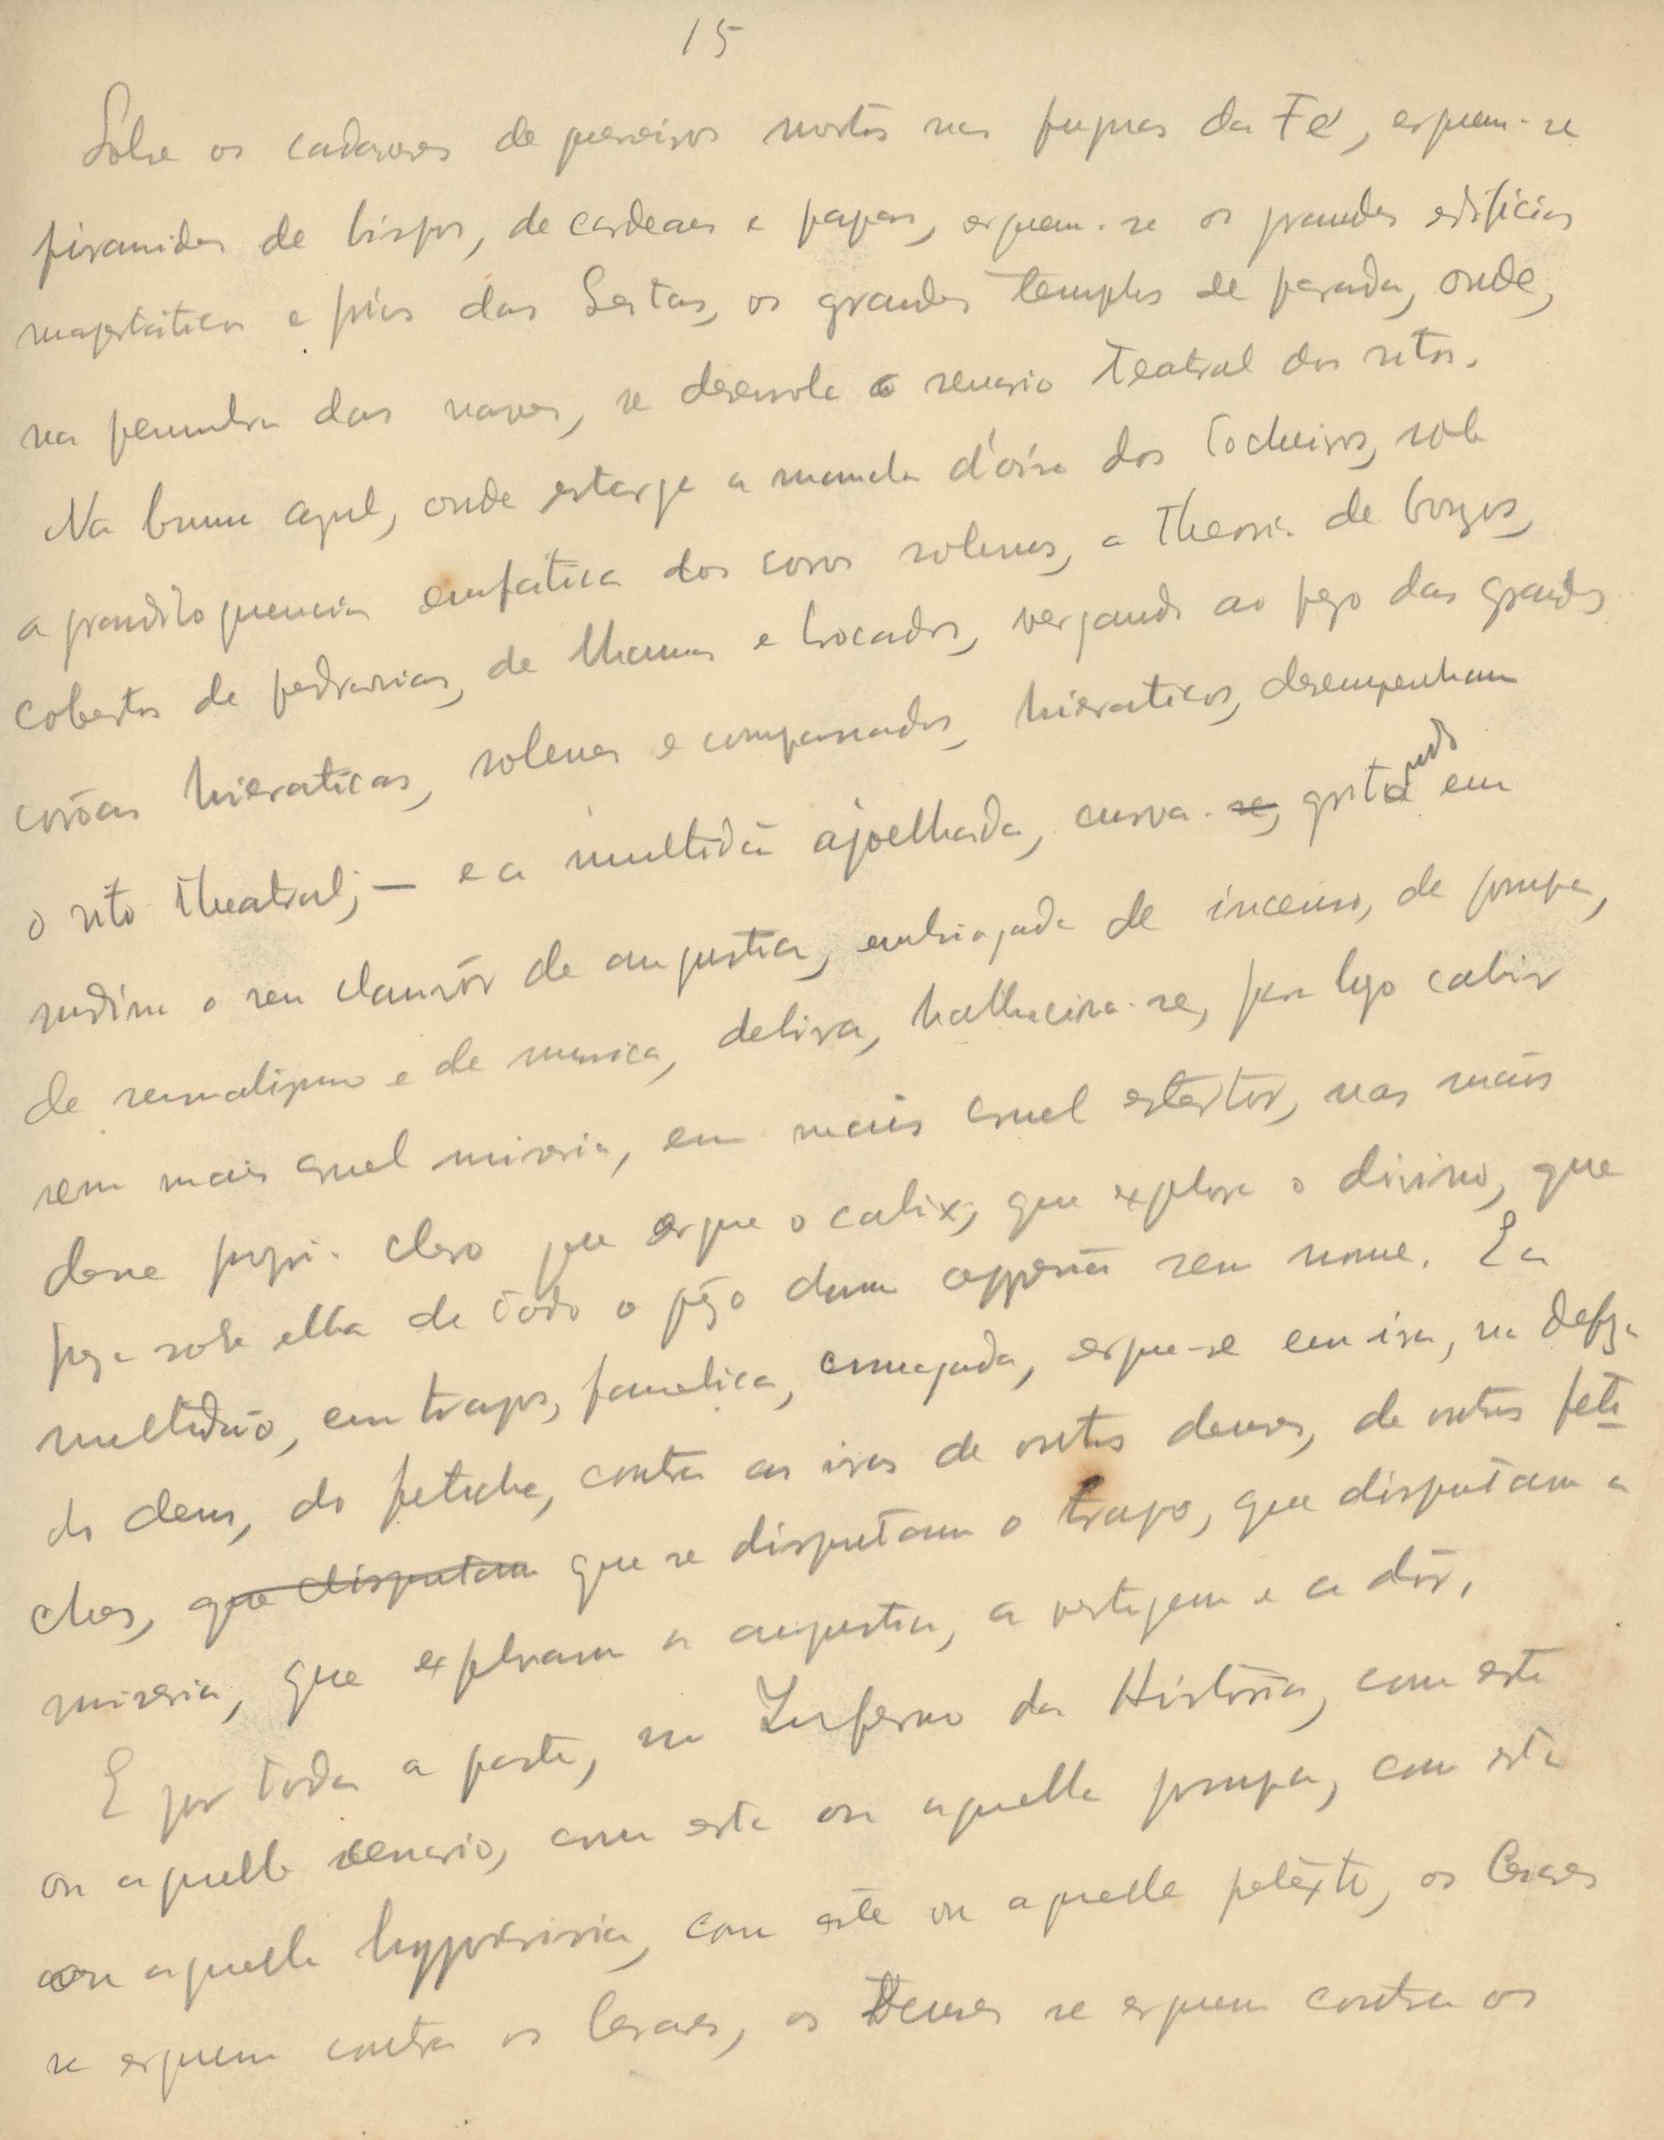 15
Sobre os cadaveres de guerreiros mortos nas pugnas da Fé, erguem-se
piramides de bispos, de cardeaes e papas, erguem-se os grandes edificios
majestáticos e pios das Seitas, os grandes templos de parada, onde,
na penumbra das naves, se desenrola o scenario teatral dos ritos.
Na bruma azul, onde estarze a mancha d'oiro dos tocheiros, sob
a grandiloquencia emfática dos coros solenes, a theoria de bonzos,
cobertos de pedrarias, de lhamas e brocados, vergando ao pezo das grandes
corôas hieraticas, solenes e compassados, hieraticos, desempenham
o rito theatral; — e a multidão ajoelhada, curva-se, gritando em
surdina o seu clamôr de angustia, embriagada de incenso, de pompa,
de sensualismo e de musica, delira, hallucina-se, para logo cahir
sem mais cruel miseria, em mais cruel estertor, nas mãos
desse proprio clero que ergue o calix, que explora o divino, que
peza sobre ella de todo o pêzo dum oppressão sem nome. E a
multidão, em trapos, famelica, esmagada, ergue-se em ira, na defeza
do deus, do fetiche, contra as iras de outros deuses, de outros feti-
ches, que disputam que se disputam o trapo, que disputam a
miseria, que exploram a angustia, a vertigem e a dôr.
E por toda a parte, no Inferno da História, com este
ou aquelle scenario, com esta ou aquella pompa, com esta
ou aquella hyppocrisia, com êste ou aquelle pretêxto, os Cesares
se erguem contra os Cesares, os Deuses se erguem contra os